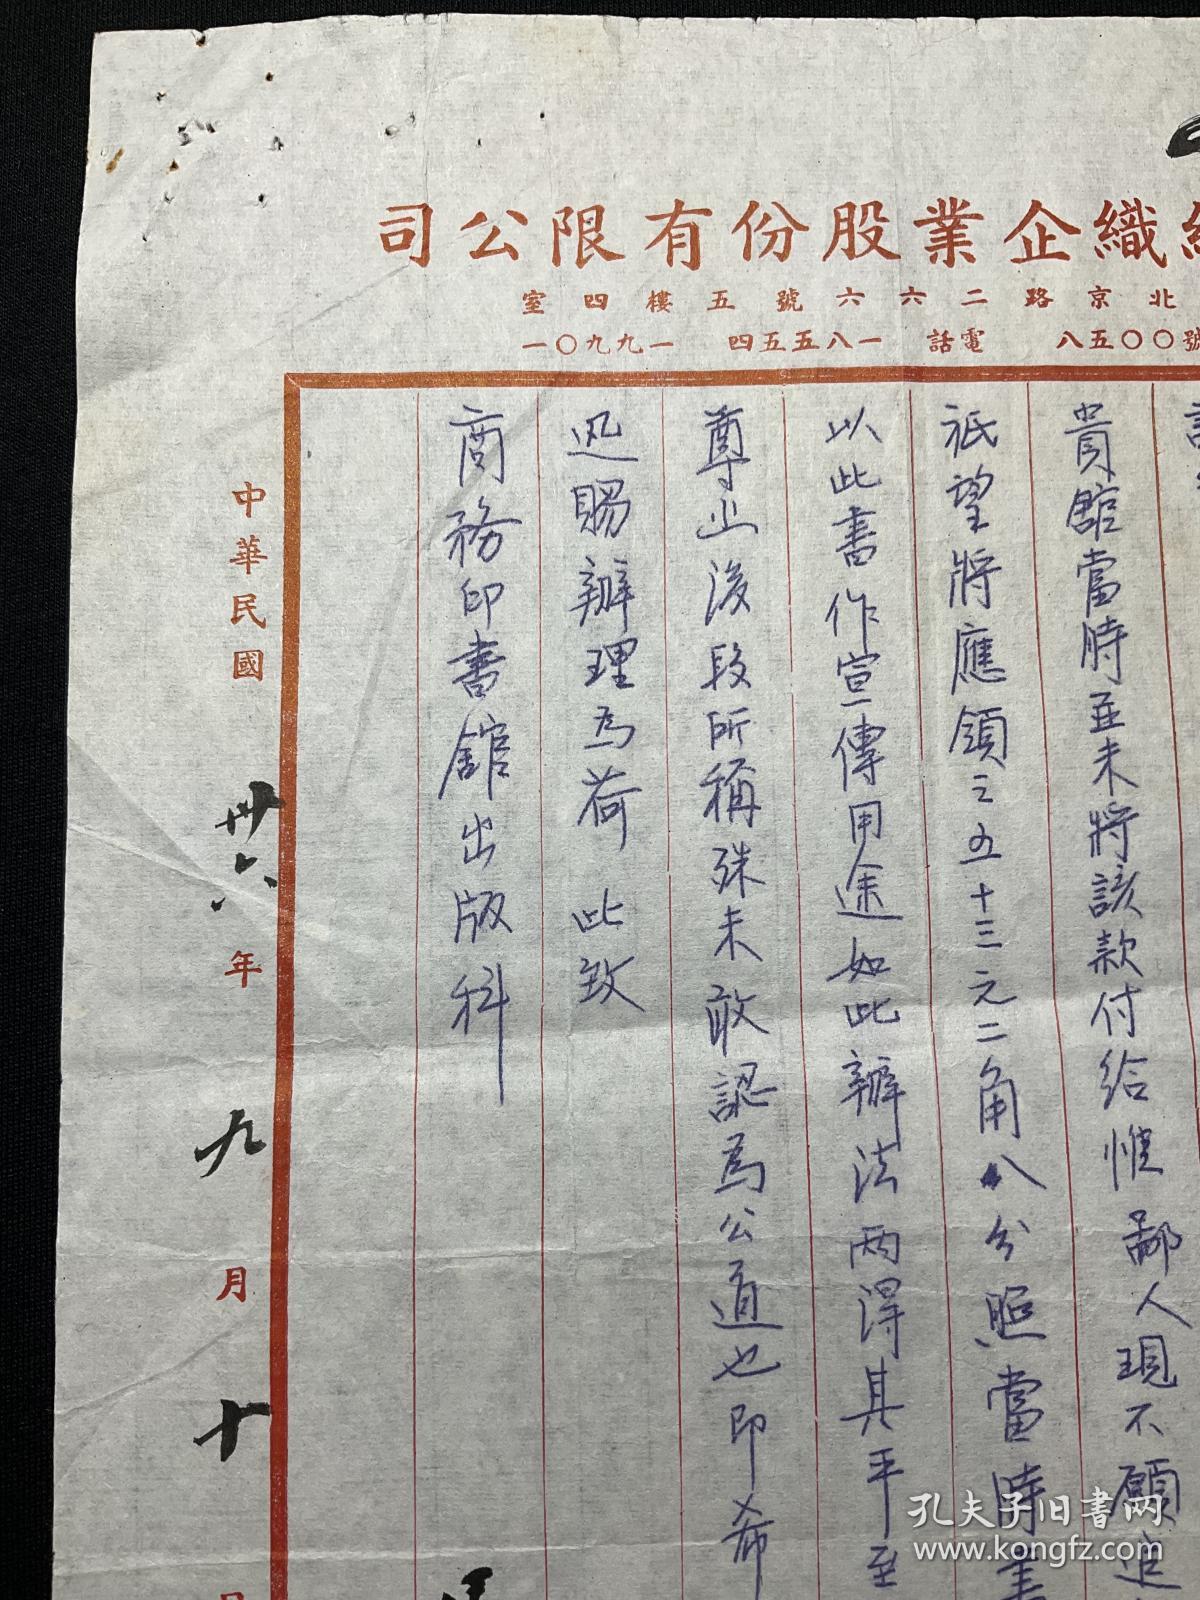 織企業股份有限公司
北京路二六六號五樓四室
號〇〇五八 電話 一八五五四 一九九〇一
貴館當時並未將該款付給惟鄙人現不願追
祇望將應領之五十三元二角八分照當時書
以此書作宣傳用途如此辦法兩得其平至
尊止後段所稱殊未敢認為公道也即希
迅賜辦理為荷 此致
商務印書館出版科
中華民國卅六年九月十
孔夫子旧书网
www.kongfz.com